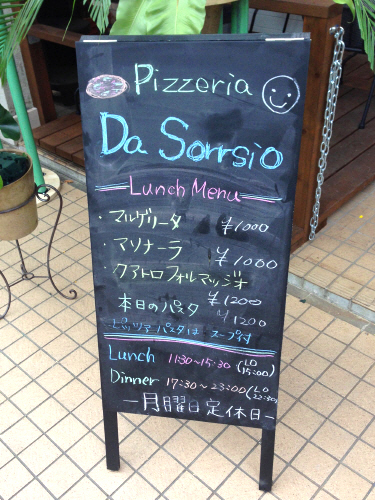 Pizzeria
Da Sorrsio
Lunch Menu
・マルゲリータ ¥1000
・マリナーラ ¥1000
・クアトロフォルマッジオ ¥1200
本日のパスタ ¥1200
ピッツァ パスタは スープ付
Lunch 11:30~15:30 (LO 15:00)
Dinner 17:30~23:00 (LO 22:30)
-月曜日定休日-